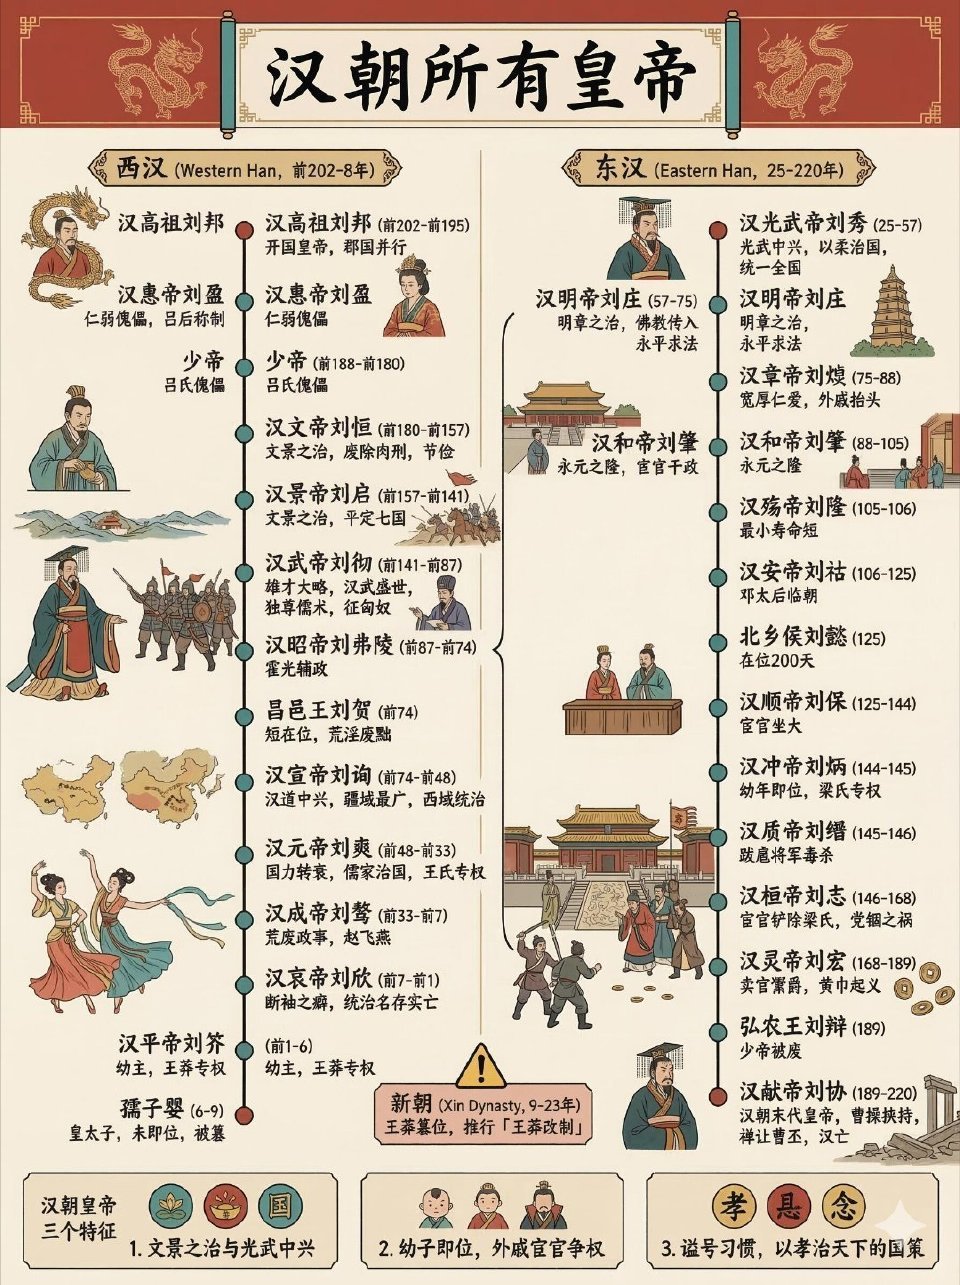 汉朝所有皇帝
西汉 (Western Han, 前202-8年)
汉高祖刘邦
汉高祖刘邦 (前202-前195)
开国皇帝，郡国并行
汉惠帝刘盈
仁弱傀儡，吕后称制
汉惠帝刘盈
仁弱傀儡
少帝
吕氏傀儡
少帝 (前188-前180)
吕氏傀儡
汉文帝刘恒 (前180-前157)
文景之治，废除肉刑，节俭
汉景帝刘启 (前157-前141)
文景之治，平定七国
汉武帝刘彻 (前141-前87)
雄才大略，汉武盛世，
独尊儒术，征匈奴
汉昭帝刘弗陵 (前87-前74)
霍光辅政
昌邑王刘贺 (前74)
短在位，荒淫废黜
汉宣帝刘询 (前74-前48)
汉道中兴，疆域最广，西域统治
汉元帝刘奭 (前48-前33)
国力转衰，儒家治国，王氏专权
汉成帝刘骜 (前33-前7)
荒废政事，赵飞燕
汉哀帝刘欣 (前7-前1)
断袖之癖，统治名存实亡
汉平帝刘
幼主，王莽专权
(前1-6)
幼主，王莽专权
孺子婴 (6-9)
皇太子，未即位，被篡
新朝 (Xin Dynasty, 9-23年)
王莽篡位，推行「王莽改制」
东汉 (Eastern Han, 25-220年)
汉光武帝刘秀 (25-57)
光武中兴，以柔治国，
统一全国
汉明帝刘庄 (57-75)
明章之治，佛教传入
永平求法
汉明帝刘庄
明章之治，
永平求法
汉章帝刘 (75-88)
宽厚仁爱，外戚抬头
汉和帝刘肇
永元之隆，宦官干政
汉和帝刘肇 (88-105)
永元之隆
汉殇帝刘隆 (105-106)
最小寿命短
汉安帝刘祜 (106-125)
邓太后临朝
北乡侯刘懿 (125)
在位200天
汉顺帝刘保 (125-144)
宦官坐大
汉冲帝刘炳 (144-145)
幼年即位，梁氏专权
汉质帝刘缵 (145-146)
跋扈将军毒杀
汉桓帝刘志 (146-168)
宦官铲除梁氏，党锢之祸
汉灵帝刘宏 (168-189)
卖官鬻爵，黄巾起义
弘农王刘辩 (189)
少帝被废
汉献帝刘协 (189-220)
汉朝末代皇帝，曹操挟持，
禅让曹丕，汉亡
汉朝皇帝
三个特征
国
1. 文景之治与光武中兴
2. 幼子即位，外戚宦官争权
孝 念
3. 谥号习惯，以孝治天下的国策